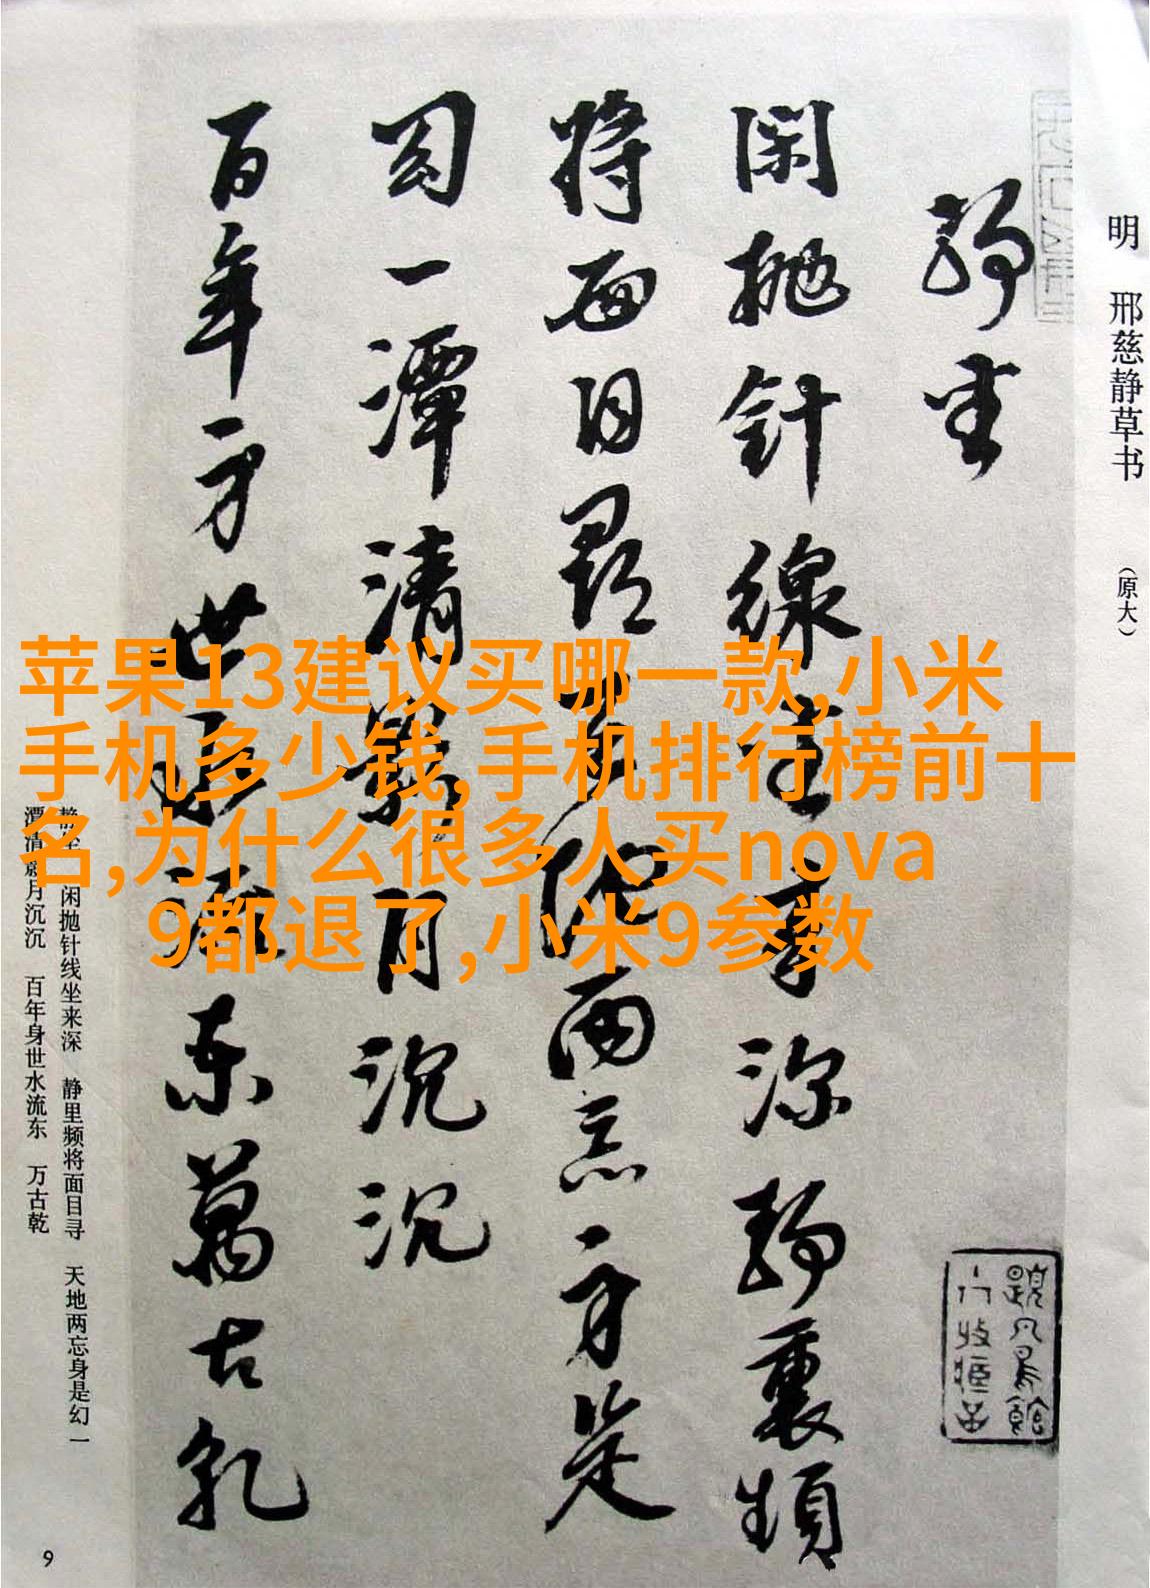 明 邢慈静草书 （原大）
静坐
闲抛针線坐来深静裏頻
将面目尋天地两忘身是
幻一潭清就月沉沉
百年身世水流东萬古乾
苹果13建议买哪一款,小米
手机多少钱,手机排行榜前十
名,为什么很多人买nova
9都退了,小米9参数
静坐 闲抛针线坐来深 静里频将面目寻 天地两忘身是幻 一
潭清就月沉沉 百年身世水流东 万古乾
9